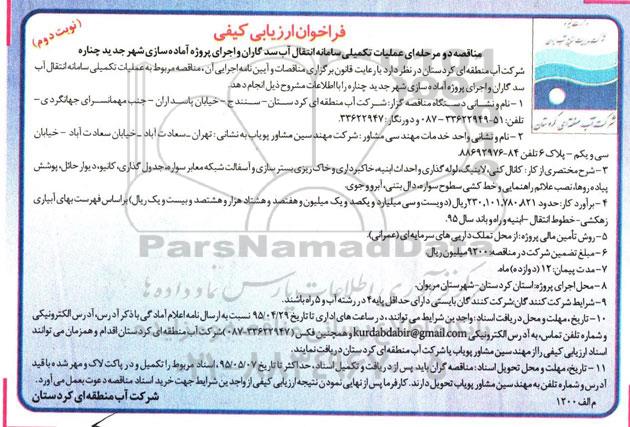 (نوبت دوم)
فراخوان ارزیابی کیفی
شرکت آب منطقه‌ای کردستان
مناقصه دو مرحله‌ای عملیات تکمیلی سامانه انتقال آب سد گاران و اجرای پروژه آماده سازی شهر جدید چناره
شرکت آب منطقه‌ای کردستان در نظر دارد با رعایت قانون برگزاری مناقصات و آیین نامه اجرایی آن، مناقصه مربوط به عملیات تکمیلی سامانه انتقال آب
سد گاران و اجرای پروژه آماده سازی شهر جدید چناره را با اطلاعات مشروح ذیل انجام دهد.
۱- نام و نشانی دستگاه مناقصه گزار: شرکت آب منطقه ای کردستان- سنندج- خیابان پاسداران- جنب مهمانسرای جهانگردی-
تلفن: ۵۱-۳۳۶۲۲۹۴۹-۰۸۷ و دورنگار: ۳۳۶۲۲۹۴۷.
۲- نام و نشانی واحد خدمات مهندسی مشاور: شرکت مهندسین مشاور پویاب به نشانی: تهران- سعادت آباد- خیابان سعادت آباد- خیابان
سی و یکم- پلاک ۶ تلفن ۸۴-۸۸۶۹۲۹۷۶.
۳- شرح مختصری از کار: کانال کنی، لاینینگ، لوله گذاری و احداث ابنیه، خاکبرداری و خاک ریزی بستر سازی و آسفالت شبکه معابر سواره، جدول گذاری، کانیو، دیوار حائل، پوشش
پیاده روها، نصب علائم راهنمایی و خط کشی سطوح سواره، دال بتنی، آبرو و جوی.
۴- برآورد کار: حدود ۲۳۰,۱۰۱,۷۸۰,۸۲۱ ریال (دویست و سی میلیارد و یکصد و یک میلیون و هفتصد و هشتاد هزار و هشتصد و بیست و یک ریال) براساس فهرست بهای آبیاری
زهکشی- خطوط انتقال - ابنیه و راه و باند سال ۹۵.
۵- روش تأمین مالی پروژه: از محل تملک دارایی های سرمایه ای (عمرانی).
۶- مبلغ تضمین شرکت در مناقصه: ۹۲۰۰ میلیون ریال.
۷- مدت پیمان: ۱۲ (دوازده) ماه.
۸- محل اجرای پروژه: استان کردستان- شهرستان مریوان.
۹- شرایط شرکت کنندگان: شرکت کنندگان بایستی دارای حداقل پایه ۴ در رشته آب و ۵ راه باشند.
۱۰- تاریخ، مهلت و محل دریافت اسناد: واجدین شرایط می توانند، در ساعت های اداری تا تاریخ ۹۵/۰۴/۲۹ نسبت به ارسال نامه اعلام آمادگی با ذکر آدرس، آدرس الکترونیکی
و شماره تلفن تماس، به آدرس الکترونیکی kurdabdabir@gmail.com و همچنین فکس (۳۳۶۲۲۹۴۷-۰۸۷) شرکت آب منطقه ای کردستان اقدام و همزمان می توانند
اسناد ارزیابی کیفی را از مهندسین مشاور پویاب یا شرکت آب منطقه ای کردستان دریافت نمایند.
۱۱- تاریخ، مهلت و محل تحویل اسناد: مناقصه گران باید پس از دریافت و تکمیل اسناد، حداکثر تا تاریخ ۹۵/۰۵/۰۷، اسناد مربوط را تکمیل و در پاکت لاک و مهر شده با قید
آدرس و شماره تلفن به مهندسین مشاور پویاب تحویل دارند. کارفرما پس از نهایی نمودن نتیجه ارزیابی کیفی از واجدین شرایط جهت خرید اسناد مناقصه دعوت بعمل می آورد.
شرکت آب منطقه ای کردستان
م الف ۱۲۰۰
ParsNamadData